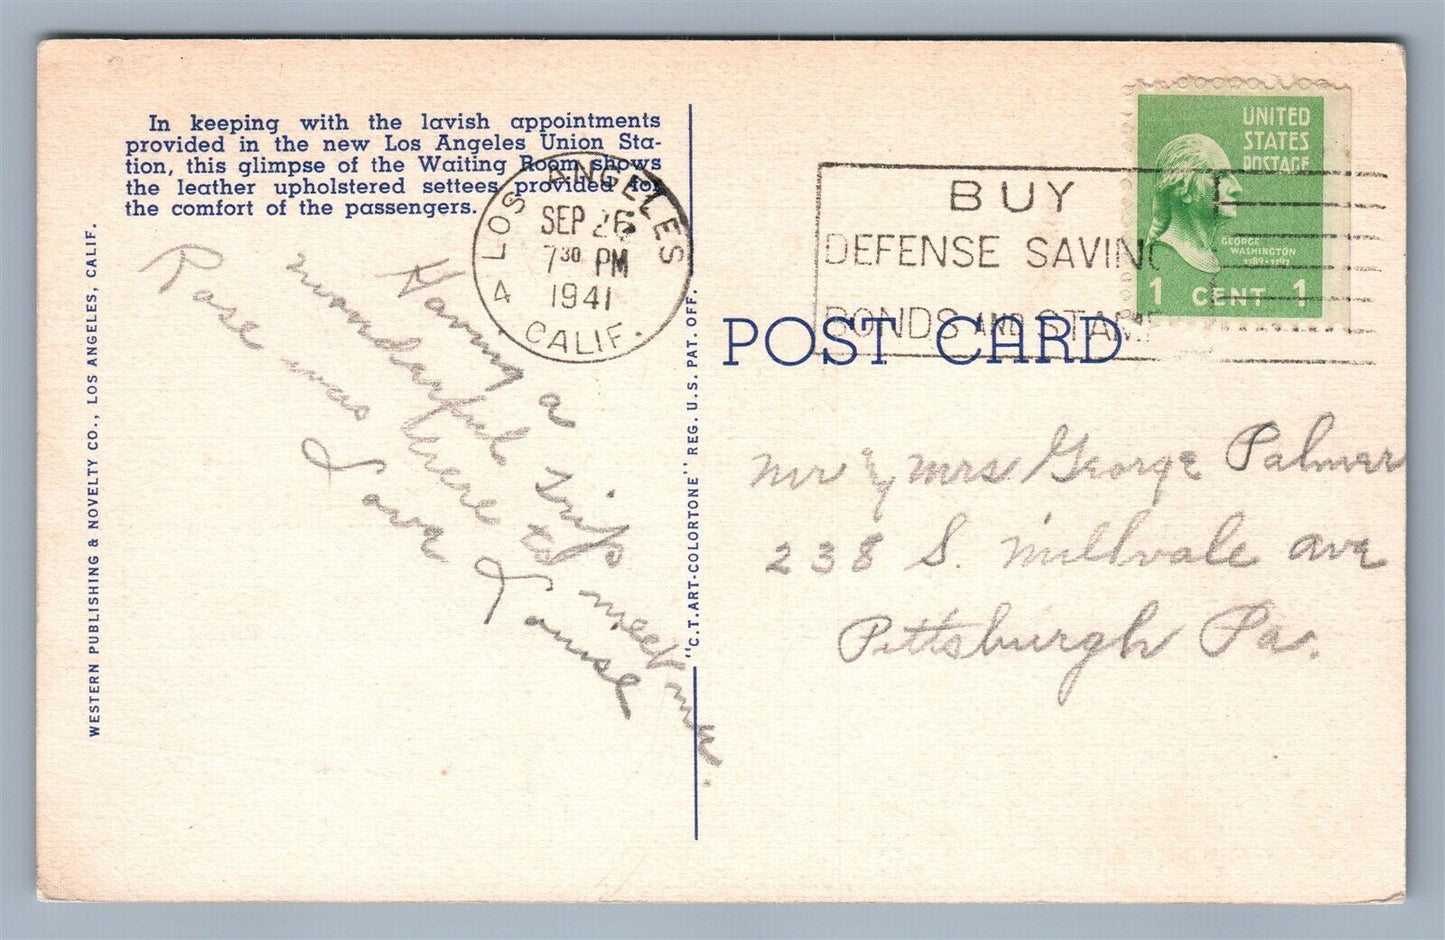 In keeping with the lavish appointments
provided in the new Los Angeles Union Sta-
tion, this glimpse of the Waiting Room shows
the leather upholstered settees provided for
the comfort of the passengers.
WESTERN PUBLISHING & NOVELTY CO., LOS ANGELES, CALIF.
Having a
wonderful trip
Rose was here to meet me.
Love
Louise
LOS ANGELES
SEP 26
7 30 PM
1941
4
CALIF.
"C.T. ART-COLORTONE" REG. U.S. PAT. OFF.
BUY
DEFENSE SAVING
BONDS AND STAMP
UNITED
STATES
POSTAGE
GEORGE
WASHINGTON
1789-1797
1 CENT 1
POST CARD
Mr & Mrs George Palmer
238 S. Millvale ave
Pittsburgh Pa.